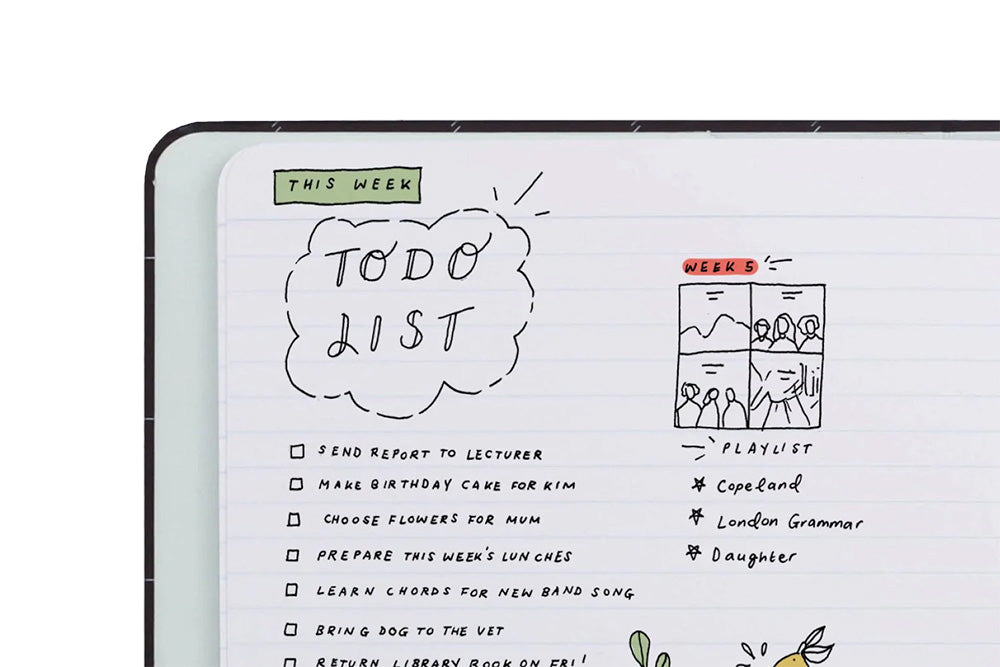 THIS WEEK
TODO
LIST
SEND REPORT TO LECTURER
MAKE BIRTHDAY CAKE FOR KIM
CHOOSE FLOWERS FOR MUM
PREPARE THIS WEEK'S LUNCHES
LEARN CHORDS FOR NEW BAND SONG
BRING DOG TO THE VET
RETURN LIBRARY BOOK ON FRI!
WEEK 5
PLAYLIST
Copeland
London Grammar
Daughter